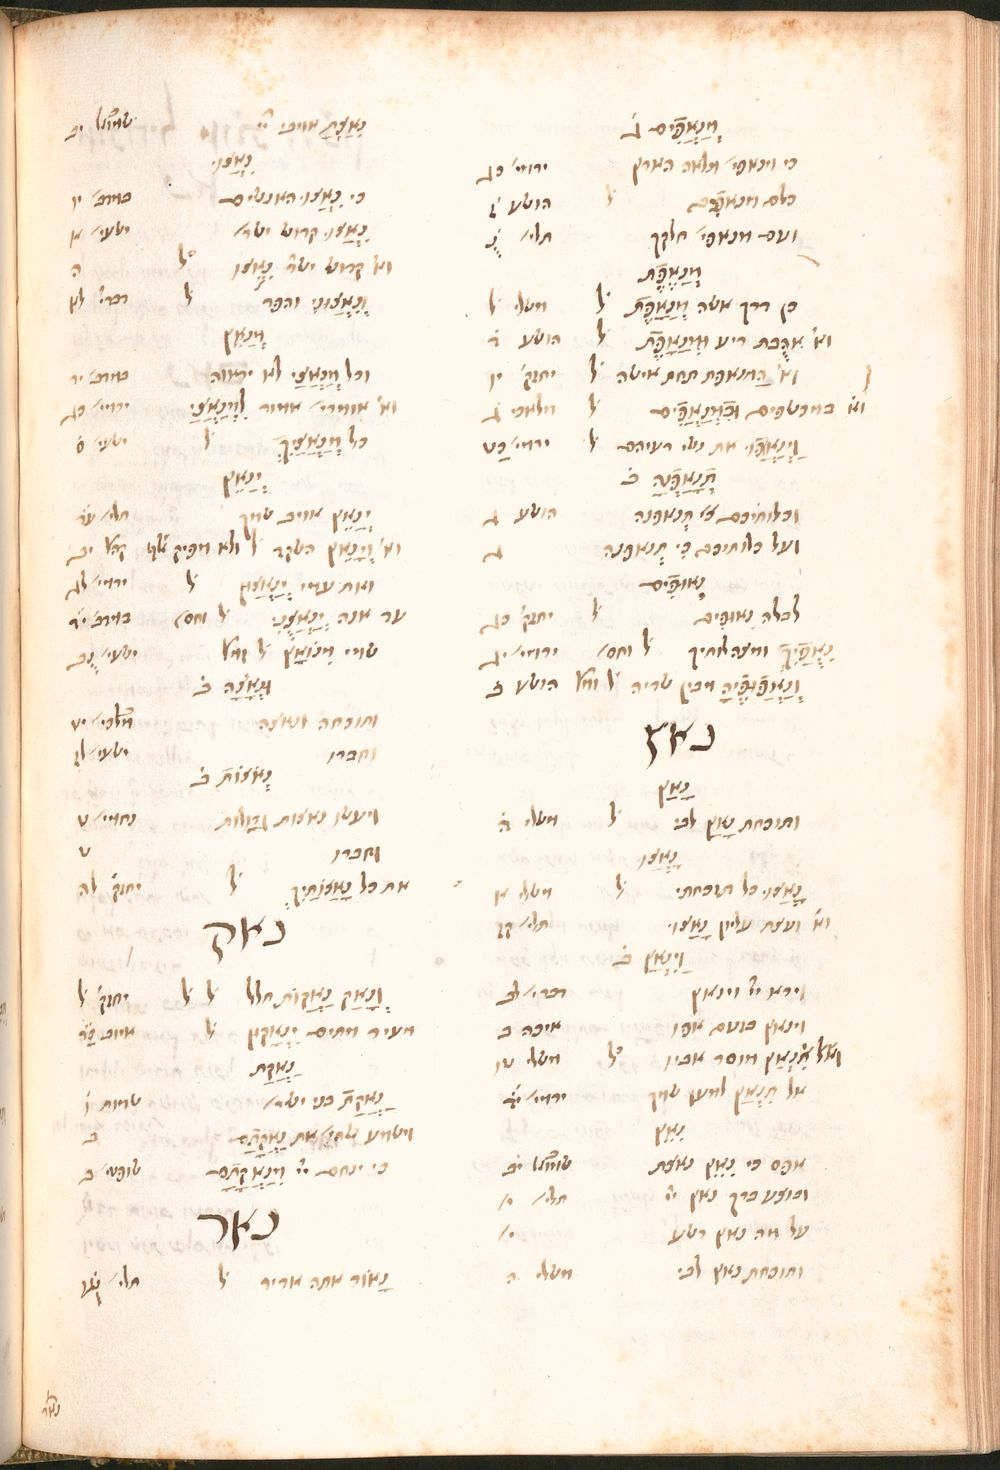 מְנָאֲפִים ג̇
כי מנאפי׳ מלאה הארץ ירמי׳ כג
כלם מנאפים ל̇ הושע ז̇
ועם מנאפי׳ חלקך תלי׳ נ̇
מְנָאֶפֶת
כן דרך אשה מְנָאָפֶת ל̇ משלי ל̇
וא׳ אהבת ריע וּמְנָאָפֶת ל̇ הושע ג̇
וא׳ המנאפת תחת אישה ל̇ יחזק׳ יו
וא׳ במכשפים וּבַמְנָאֲפִים ל̇ מלאכי ג
וַיְנַאֲפוּ את נשי רעיהם ל̇ ירמי׳ כט
תְּנָאַפְנָה ב̇
וכלותיכם כי תנאפנה הושע ד
ועל כלותיכם כי תנאפנה ד
נאופים
לבלה נאופים ל̇ יחזק׳ כג
נִאֻפַיִךְ ומצהלותיך ל̇ וחס׳ ירמי׳ יג
וְנַאֲפוּפֶיהָ מבין שדיה ל̇ ומל̇ הושע ב̇
נאץ
נָאַץ
ותוכחת נָאַץ לבי ל̇ משלי ה̇
נָאֲצוּ
נָאֲצוּ כל תוכחתי ל̇ משלי א
וא׳ ועצת עליון נָאָצוּ תלי׳ קז
וַיִּנְאַץ ב̇
וירא יי׳ וינאץ דברי׳ לב
וינאץ בזעם אפו איכה ב
יִנְאַץ מוסר אביו ל̇ משלי טו
אל תִּנְאַץ למען שמך ירמי׳ יד
נִאֵץ
אפס כי נִאֵץ נאצת שמואל יב̇
ובוצע ברך נאץ יי׳ תלי׳ י׳
על מה נאץ רשע י׳
ותוכחת נאץ לבי משלי ה
נִאַצְתָּ אויבי יי׳ שמואל יב
נִאֲצוּ
כי נִאֲצוּ האנשים במדב׳ יו
נִאֲצוּ קדוש ישר׳ ישעי׳ א
וא׳ קדוש ישר׳ נִאֵצוּ ל̇ ה
וְנִאֲצוּנִי והפר ל̇ דברי׳ לא
מְנָאֵץ
וכל מְנַאֲצַי לא יראוה במדב׳ יד
וא׳ אומרי׳ אמור לִמְנַאֲצַי ירמי׳ כג
כל מְנַאֲצָיִךְ ל̇ ישעי׳ ס̇
יְנָאֵץ
יְנָאֵץ אויב שמך תלי׳ עד̇
וא׳ וְיָנֵאץ השקד ל̇ ולא מפיק אלף קהל יב
ואת עמי יִנְאָצוּן ל̇ ירמי׳ לג
עד אנה יְנַאֲצֻנִי ל̇ וחס׳ במדב׳ יד̇
שמי מִנֹּאָץ ל̇ ומל̇ ישעי׳ נב
וּנְאָצָה ב̇
ותוכחה ונאצה מלכי׳ יט
וחברו ישעי׳ לז
נֶאָצוֹת ב̇
ויעשו נאצות גדולות נחמי׳ ט
וחברו ט
את כל נָאָצוֹתֶיךָ ל̇ יחזק׳ לה
נאק
וְנָאַק נַאֲקוֹת חלל ל̇ ל̇ יחזק׳ ל̇
מעיר מתים יִנְאָקוּ ל̇ איוב כד̇
נַאֲקַת
נַאֲקַת בני ישר׳ שמות ו̇
וישמע אלהי׳ את נַאֲקָתָם ב
כי ינחם יי׳ מִנַּאֲקָתָם שופטי׳ ב
נאר
נָאוֹר אתה אדיר ל̇ תלי׳ עו
נאר